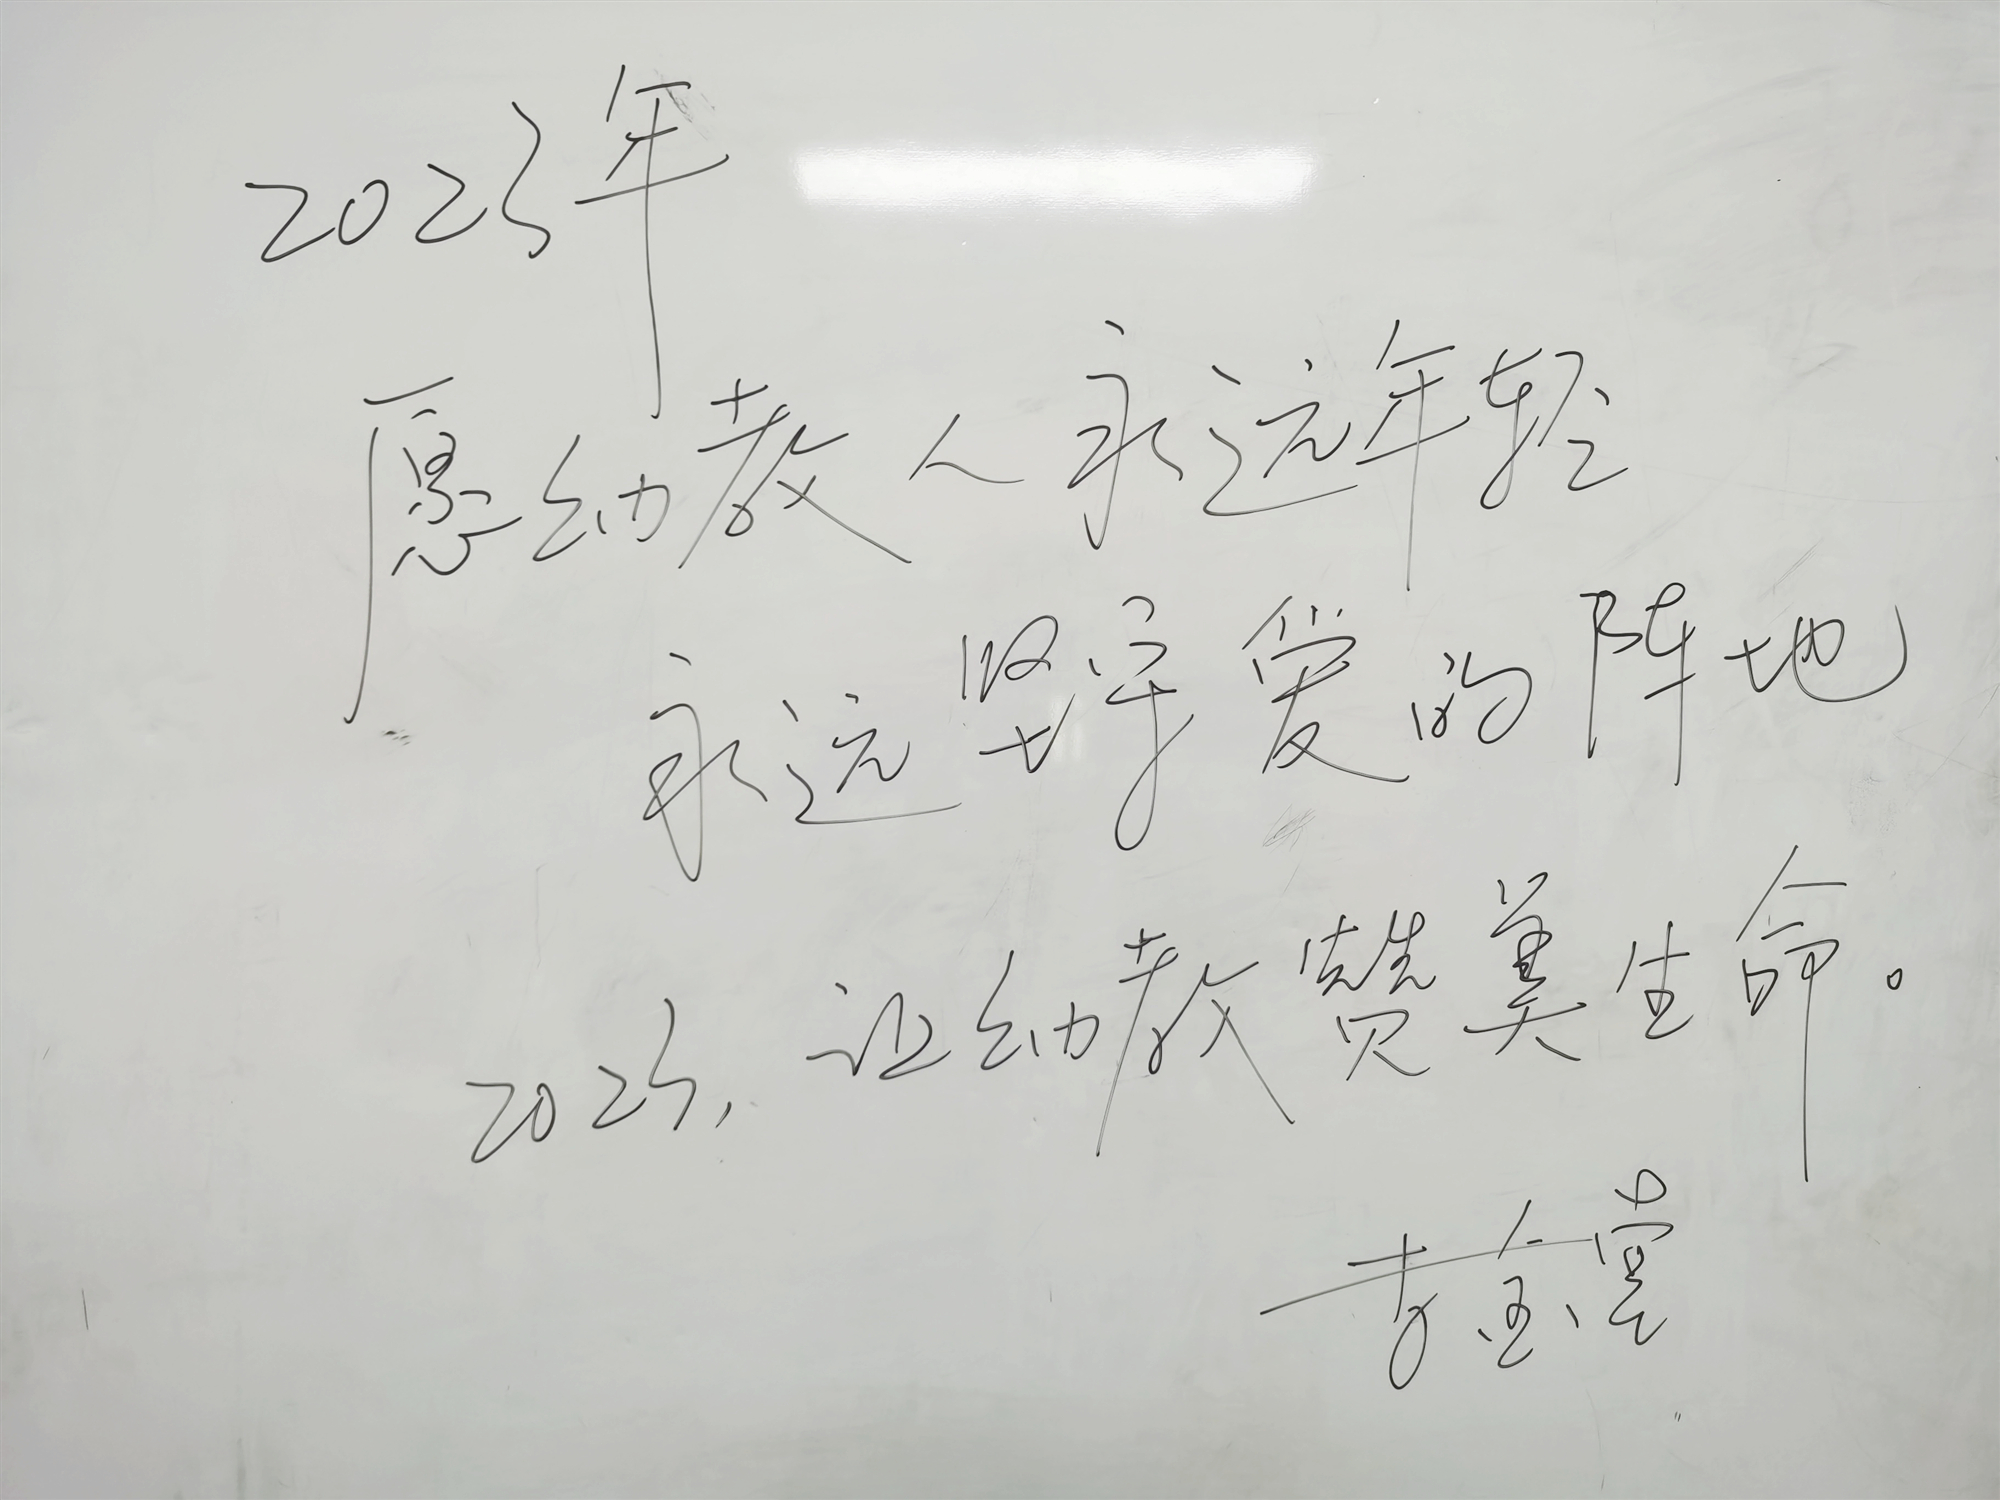 2023年
愿幼教人永远年轻
永远坚守爱的阵地
2023，让幼教赞美生命。
李金